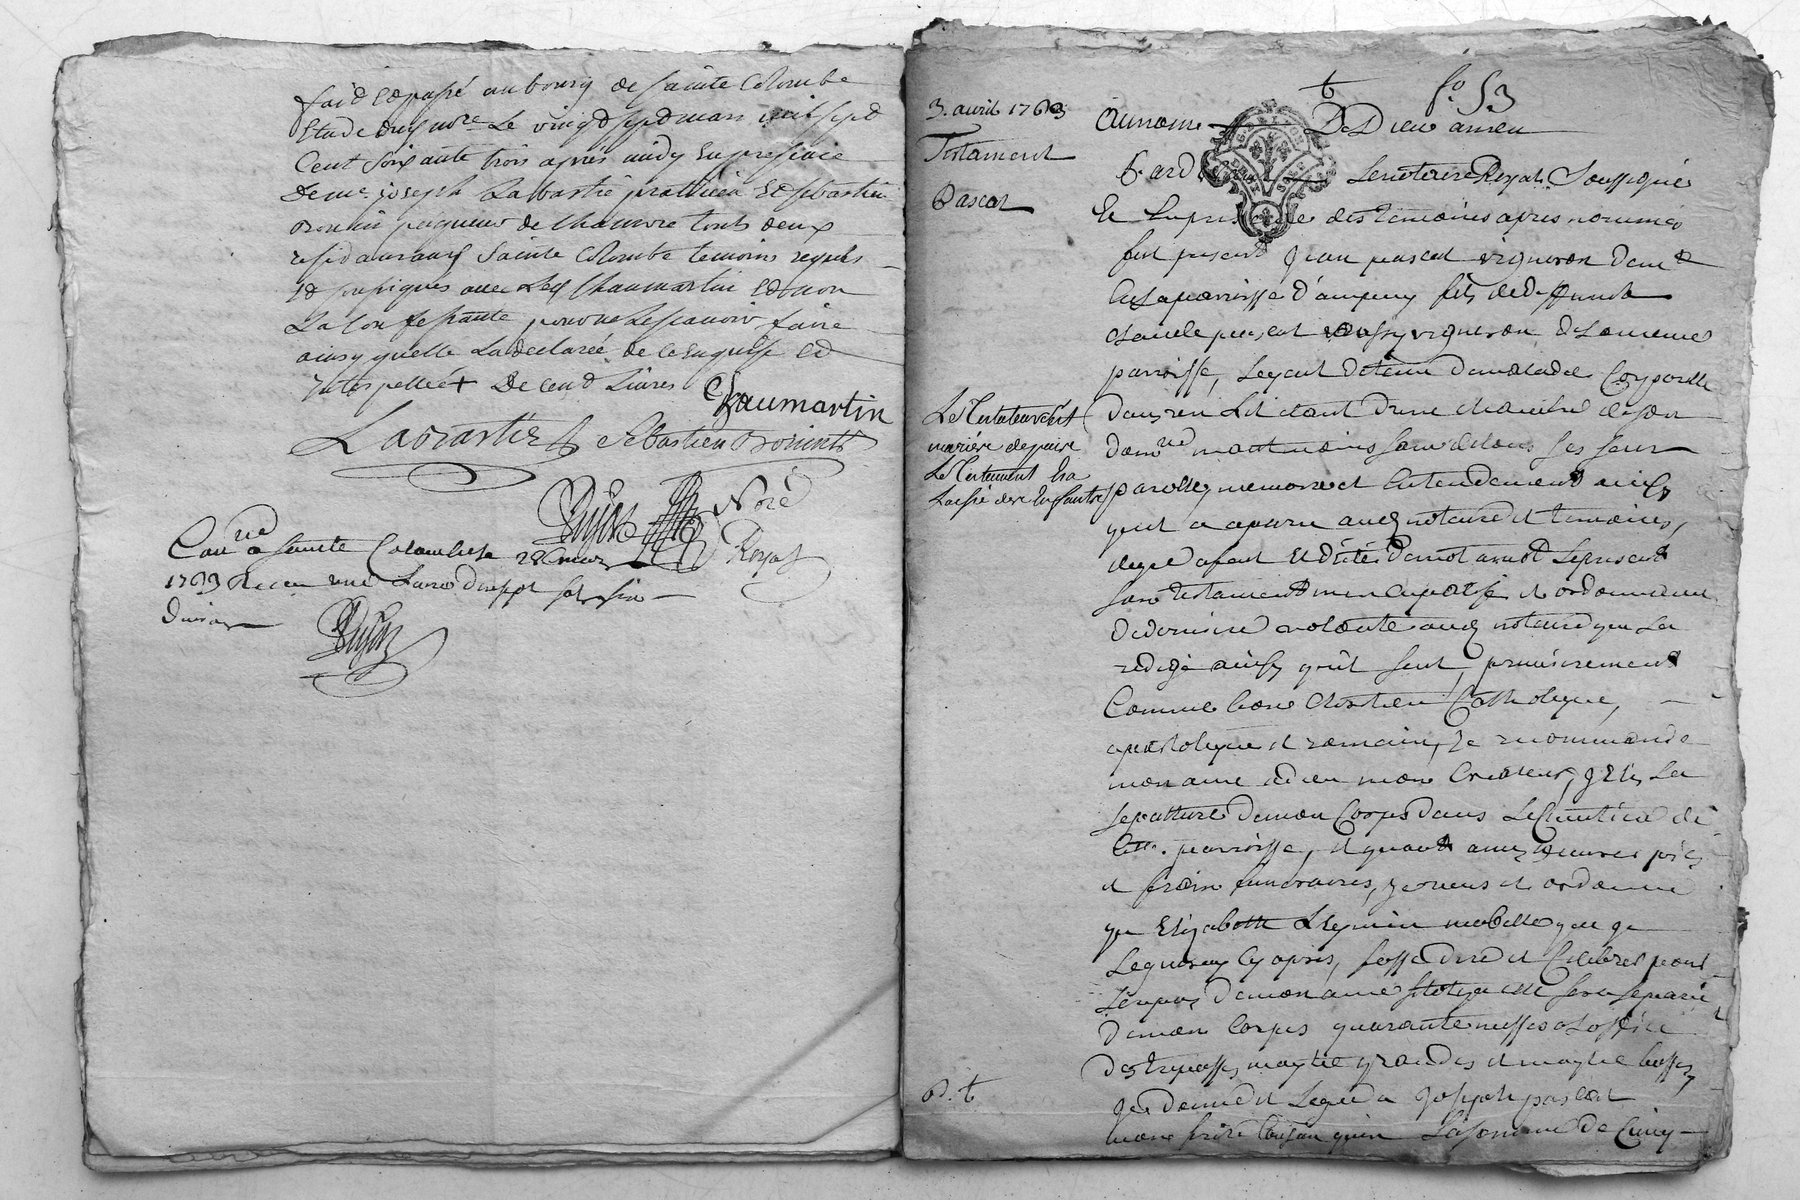 fait et passé au bourg de Sainte Colombe
Etude dud not.re Le vingt sept mars mil sept
Cent soixante trois après midy En presence
De me. joseph Labastie pratticien Et Sebastien
peigneur de Chanvre touts deux
residants aud Sainte Colombe temoins requis
Et soussignés avec led Chaumartin Et non
La Confessante pour ne le scavoir faire
ainsy quelle La declarée de ce Enquise Et
Interpellée + De cent Livres
Chaumartin
Labastie Sebastien
Not.re
Royal
Con.lé a Sainte Colombe le 28 mars
1763 Recu une Livre
f.o 53
3. avril 1763
Testament
Pascal
Au nom De Dieu amen
Pard Le notaire Royal Soussigné
Et En presence des temoins apres nommés
fut present Jean pascal vigneron dem.t
En La parroisse d'ampuy fils de deffunct
Claude pascal aussy vigneron de La meme
parroisse, Lequel detenu de maladie Corporelle
dans un Lit etant dans une chambre de son
dom.lle neantmoins sain de tous ses sens
parolle, memoire et Entendement ainsy
quil a aparu aud notaire et temoins,
degré a fait Et dicté de mot a mot Le present
son testament et ordonnance
De derniere volonté aud notaire qui La
redigé ainsy quil suit, premierement
Comme bon Chretien Catholique,
apostolique et romain, Je recommande
mon ame a dieu mon Createur, J'Elis La
sepulture de mon Corps dans Le Cimetiere de
lad. parroisse, Et quant aux oeuvres pies
et frais funeraires, je veux et ordonne
que Elizabeth mabelle que je
Legueray Cy apres, fasse dire et Celebrer pour
Le repos de mon ame sitot qu'elle sera separée
de mon Corps quarante messes a Loffice
des trepassés moytié grandes et moytié basses
Je donne et Legue a Joseph pascal
mon frere La somme de Cinq
Le Testateur s'est
marié depuis
Le Testament Et a
Laissé des Enfants